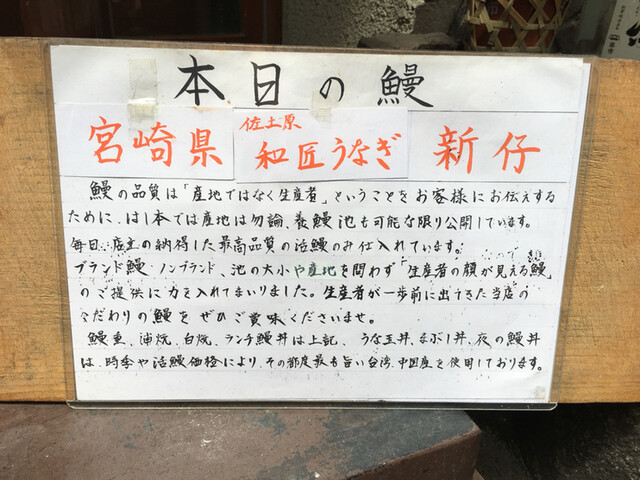 本日の鰻
宮崎県
佐土原
和匠うなぎ
新仔
鰻の品質は「産地ではなく生産者」ということをお客様にお伝えする
ために、はし本では産地は勿論、養鰻池も可能な限り公開しています。
毎日、店主の納得した最高品質の活鰻のみ仕入れています。
ブランド鰻 ノンブランド、池の大小や産地を問わず「生産者の顔が見える鰻」
のご提供に力を入れてまいりました。生産者が一歩前に出てきた当店の
こだわりの鰻をぜひご賞味くださいませ。
鰻重、蒲焼、白焼、ランチ鰻丼は上記、うな玉丼、まぶし丼、夜の鰻丼
は、時季や活鰻価格により、その都度最も旨い台湾、中国産を使用しております。